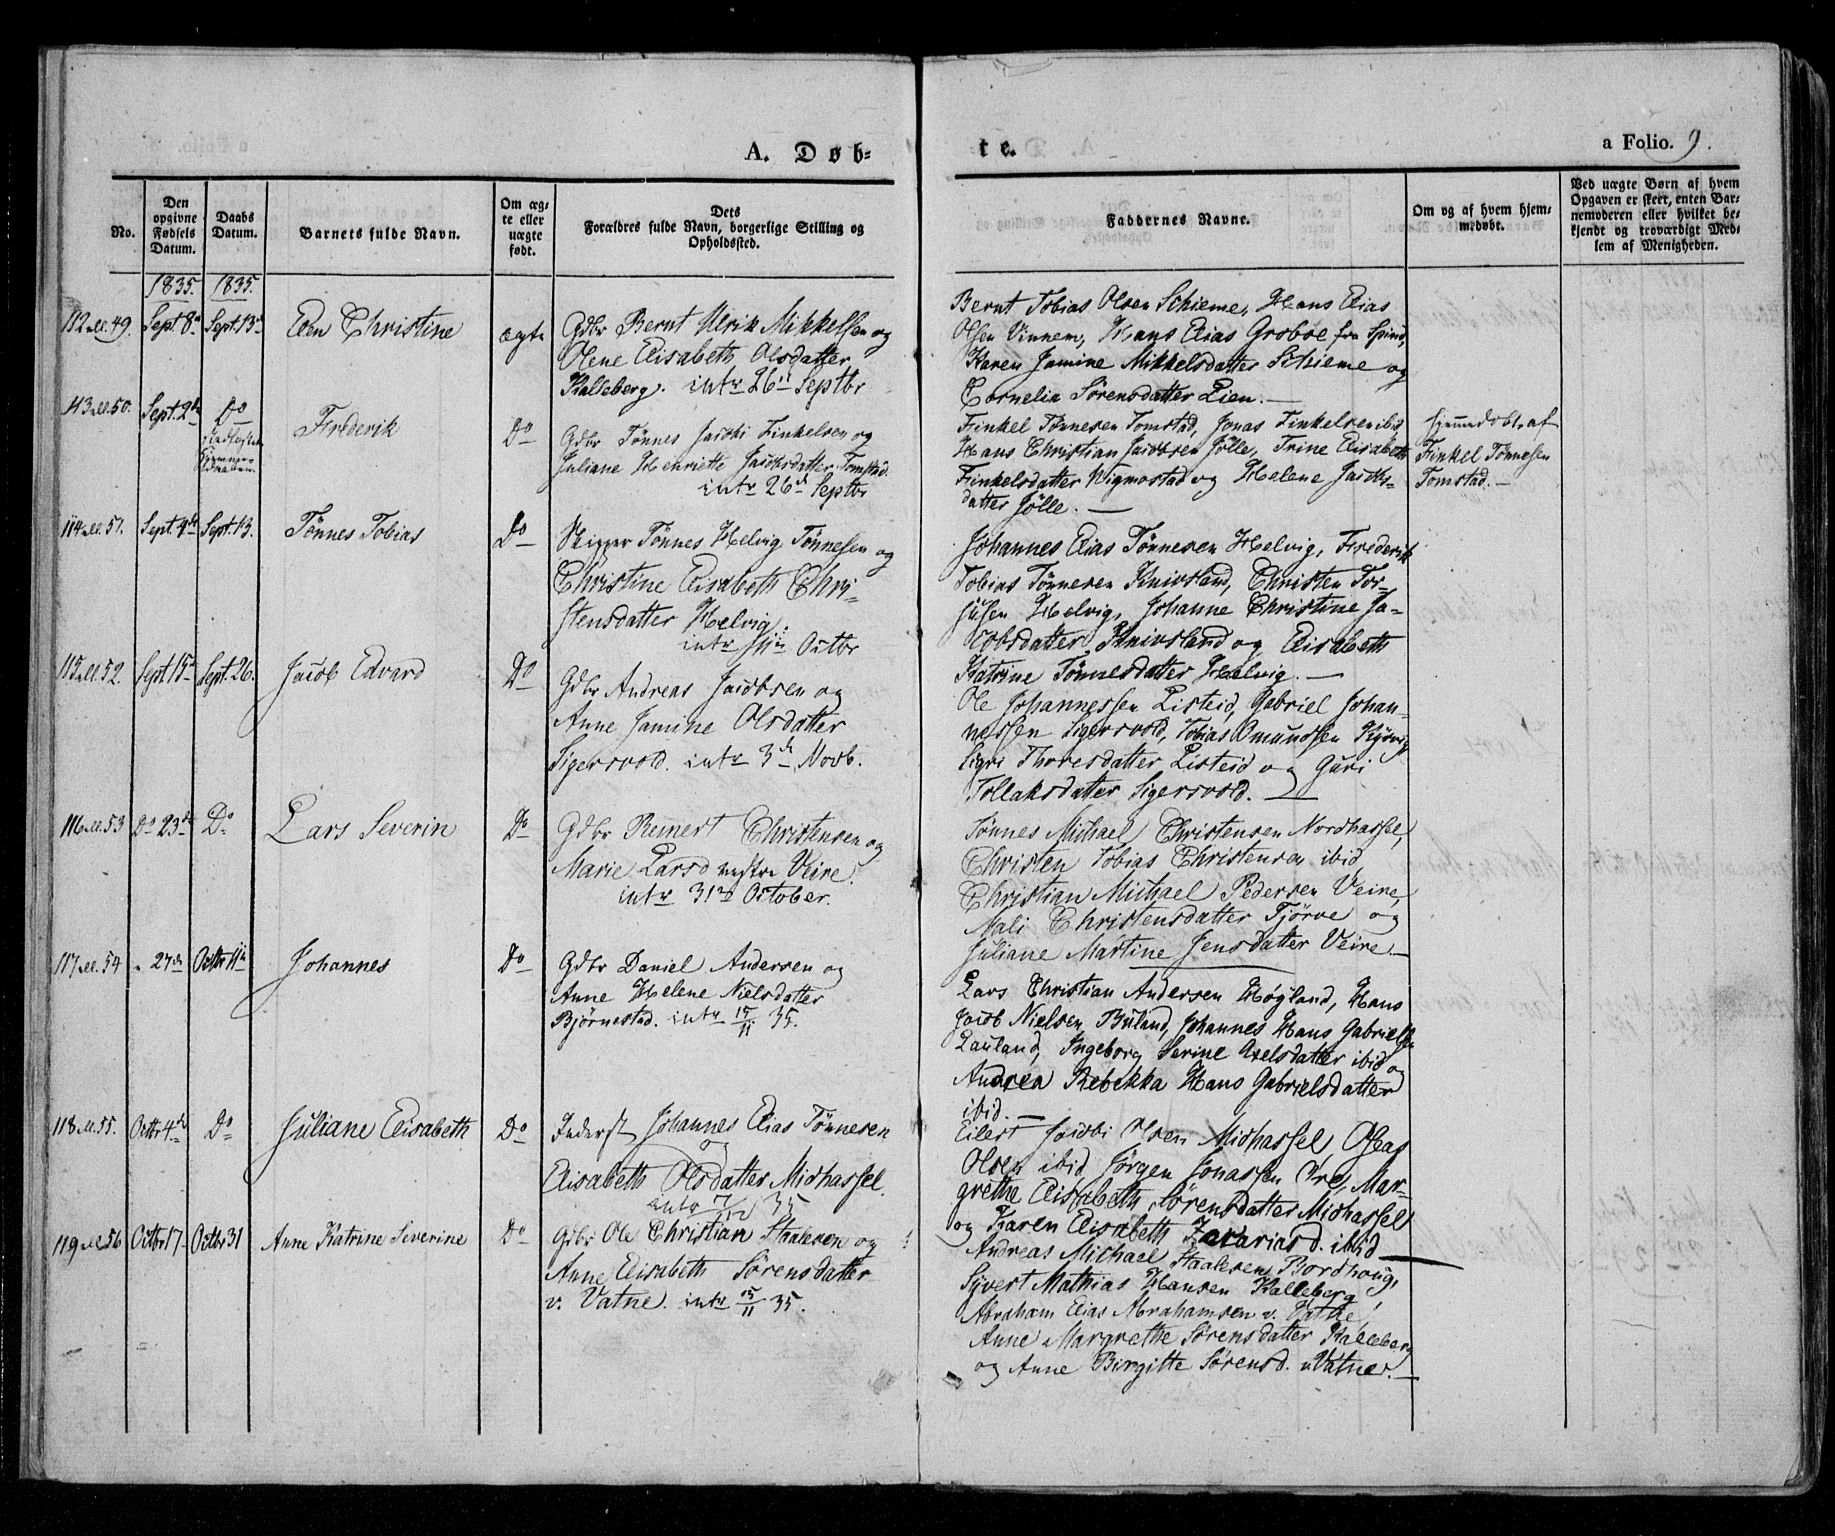 A. Døb-
te.
a Folio. 9.
No.
Den opgivne Fødsels Datum.
Daabs Datum.
Barnets fulde Navn.
Om æg-
te eller
uægte
født.
Dets
Forældres fulde Navn, borgerlige Stilling og
Opholdssted.
Faddernes Navne.
Om og af hvem hjem-
medøbt.
Ved uægte Børn af hvem
Opgaven er skeet, enten Bar-
nemoderen eller hvilket be-
kjendt og troværdigt Med-
lem af Menigheden.
1835. 1835.
112 49. Sept 8 Sept. 13 Elen Christine ægte
Gdbr Bernt Ulrik Mikkelsen og
Olene Elisabeth Olsdatter
Kalleberg. intr 26 Septbr
Bernt Tobias Olsen Schieme, Hans Elias
Olsen Vinnem, Hans Elias Groboe fra Spind,
Karen Jamine Mikkelsdatter Schieme og
Cornelia Sørensdatter Lien.—
50. Sept. 2 Do Frederik Do
Gdbr Tønnes Jacobi Finkelsen og
Juliane Henriette Jacobsdatter Tomstad.
intr 26 Septbr
Finkel Tønnesen Tomstad, Jonas Finkelsen ibid,
Hans Christian Jacobsen Jølle, Trine Elisabeth
Finkelsdatter Wigmostad og Helene Jacobs-
datter Jølle.—
hjemmedøbt af
Finkel Tønnesen
Tomstad.—
114 51. Sept. 4 Sept. 13. Tønnes Tobias Do
Skipper Tønnes Helvig Tønnesen og
Christine Elisabeth Chri-
stensdatter Helvig.
intr 11 Octbr
Johannes Elias Tønnesen Helvig, Frederik
Tobias Tønnesen Knivsland, Christen Tor-
jusen Helvig, Johanne Christine Ja-
cobsdatter Knivsland og Elisabeth
Katrine Tønnesdatter Helvig.—
115 52. Sept 15 Sept. 26. Jacob Edvard Do
Gdbr Andreas Jacobsen og
Anne Jamine Olsdatter
Sigersvold. intr 3 Novb.
Ole Johannessen Listeid, Gabriel Johan-
nessen Sigersvold, Tobias Omundsen
Sigri Thoresdatter Listeid og Guri
Tollaksdatter Sigersvold.—
116 53 Do 23 Do Lars Severin Do
Gdbr Reinert Christensen og
Marie Larsd vestre Veire.
intr 31 October.
Tønnes Michael Christensen Nordhassel,
Christen Tobias Christensen ibid,
Christian Michael Pedersen Veire,
Mali Christensdatter Tjørve og
Juliane Martine Jensdatter Veire.—
117 54 27 Octbr 11 Johannes Do
Gdbr Daniel Andersen og
Anne Helene Nielsdatter
Bjørnestad. intr 15/11 35.
Lars Christian Andersen Høgland, Hans
Jacob Nielsen Buland, Johannes Hans Gabrielsen
Lauland, Ingeborg Serine Axelsdatter ibid og
Andrea Rebekka Hans Gabrielsdatter
ibid.—
118 55. Octbr 4 Do Juliane Elisabeth Do
Inderst Johannes Elias Tønnesen
og
Elisabeth Olsdatter Midhassel.
intr 7/12 35
Eilert Jacobi Olsen Midhassel, Oleas
Olsen ibid, Jørgen Jonassen Ore, Mar-
grethe Elisabeth Sørensdatter Midhassel
og Karen Elisabeth Zacariasd. ibid—
119 56 Octbr 17 Octbr 31 Anne Katrine Severine Do
Gdbr Ole Christian Staalesen og
Anne Elisabeth Sørensdatter
v. Vatne. intr 15/11 35.
Andreas Michael Staalesen Bordhoug,
Syvert Mathias Hansen Kalleberg,
Abraham Elias Abrahamsen v. Vatne,
Anne Margrethe Sørensdatter Kalleberg
og Anne Birgitte Sørensd. v Vatne.—